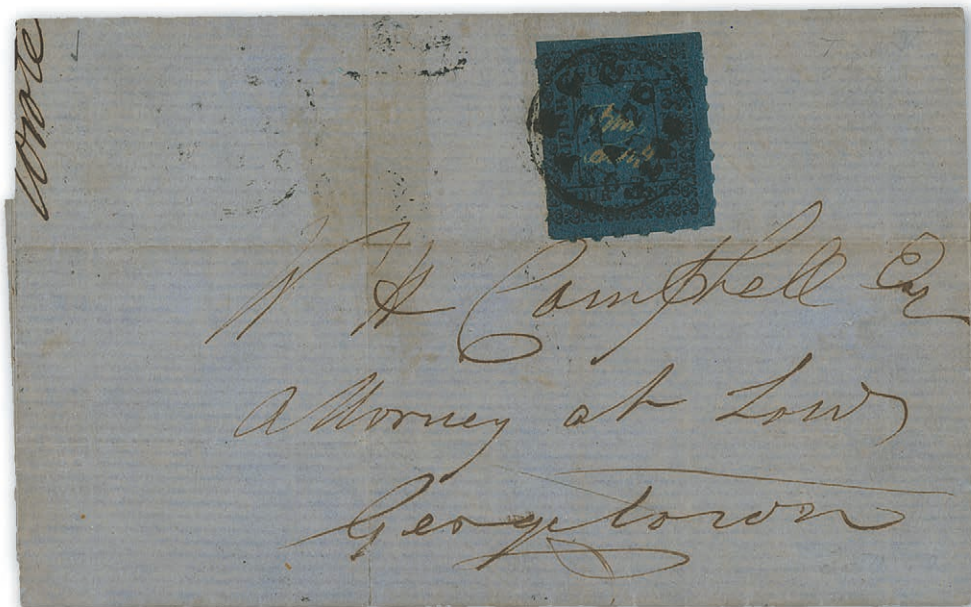 wrote
W H Campbell Esq
Attorney at Law
Georgetown